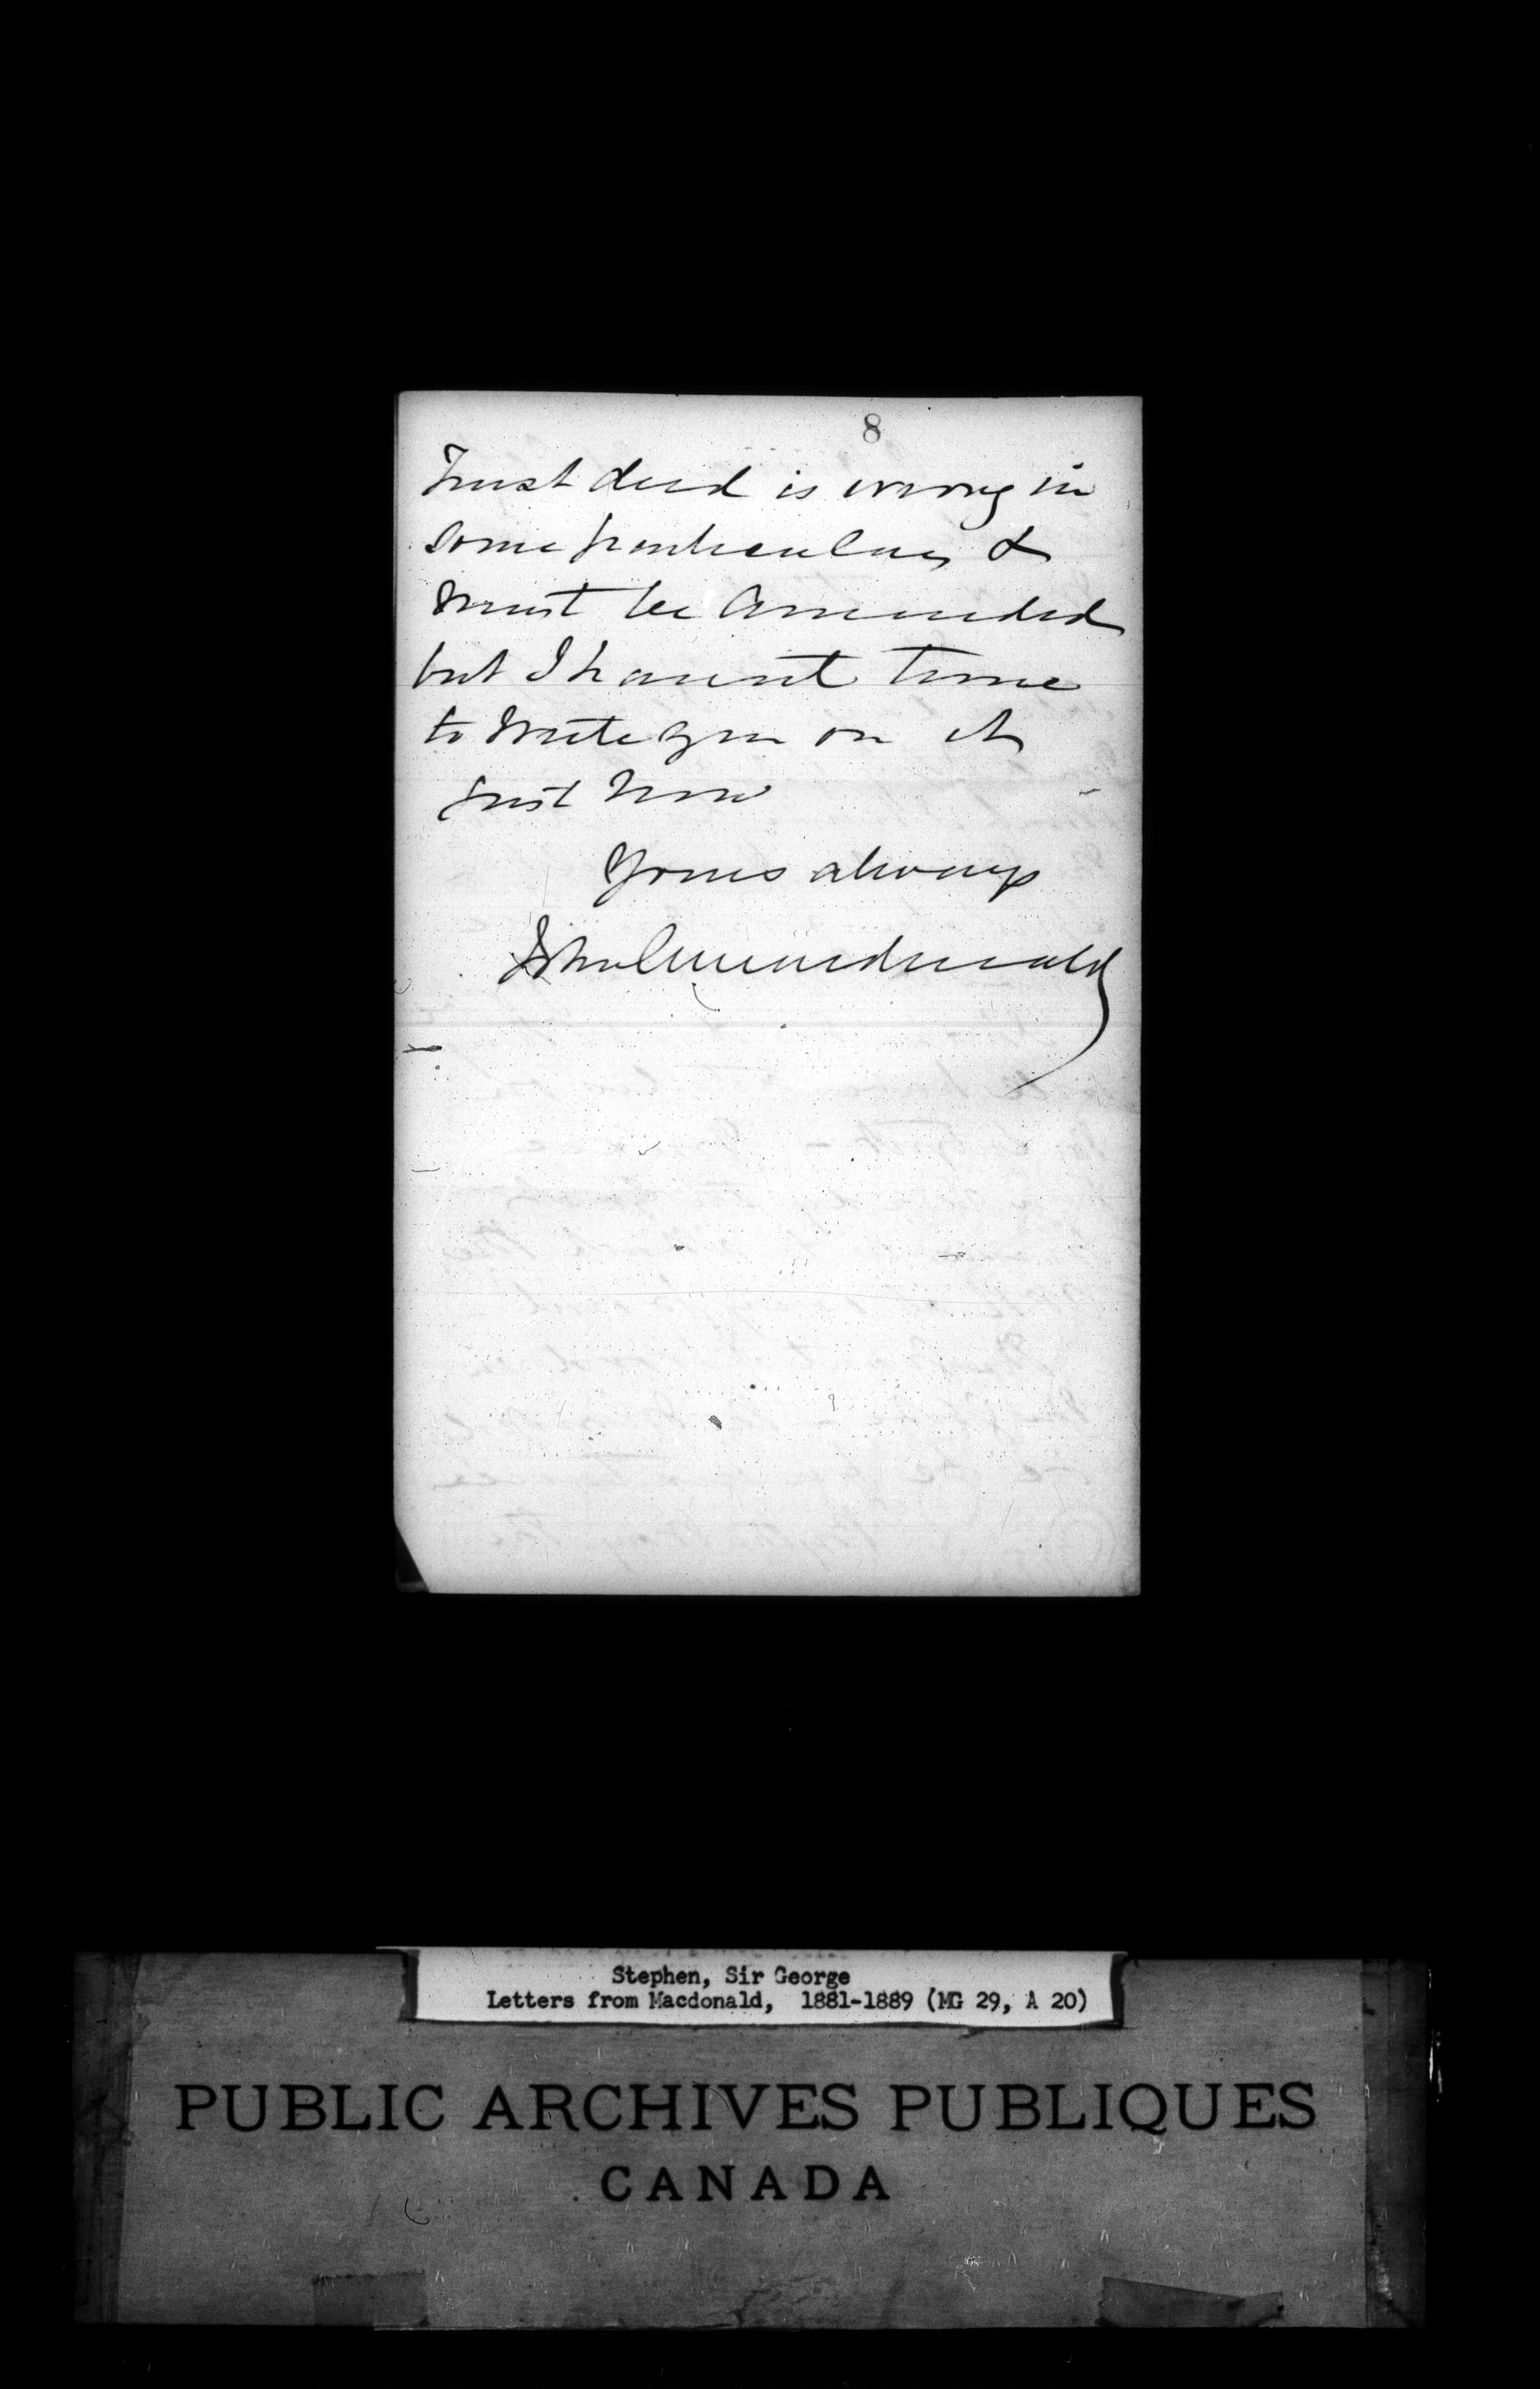 8
Trust deed is wrong in
some particulars &
must be amended
but I havent time
to write you on it
just now
Yours always
John A Macdonald
Stephen, Sir George
Letters from Macdonald, 1881-1889 (MG 29, A 20)
PUBLIC ARCHIVES PUBLIQUES
CANADA